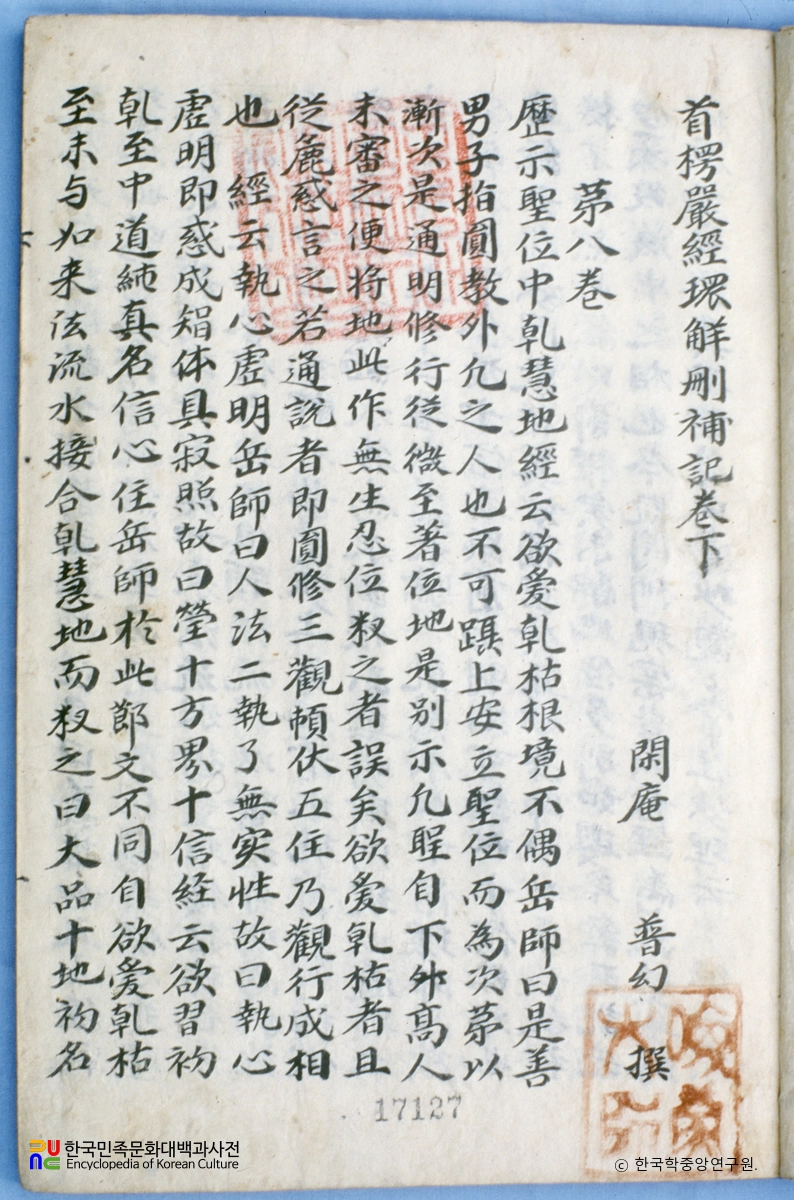 首楞嚴經環觧刪補記卷下
閑庵 普幻 撰
苐八卷
歷示聖位中乹慧地經云欲爱乹枯根境不偶岳師曰是善
男子指圎教外凢之人也不可躡上安立聖位而為次苐以
漸次是通明修行從微至著位地是别示凢聖自下外髙人
未審之便将地此作無生忍位㪅之者誤矣欲爱乹枯者且
從麁惑言之若通說者即圎修三觀頓伏五住乃觀行成相
也經云執心虛明岳師曰人法二執了無实性故曰執心
虛明即惑成智体具寂照故曰瑩十方界十信経云欲習初
乹至中道純真名信心住岳師於此節文不同自欲爱乹枯
至未与如来法流水接合乹慧地而㪅之曰大品十地初名
17127
한국민족문화대백과사전
Encyclopedia of Korean Culture
ⓒ 한국학중앙연구원.